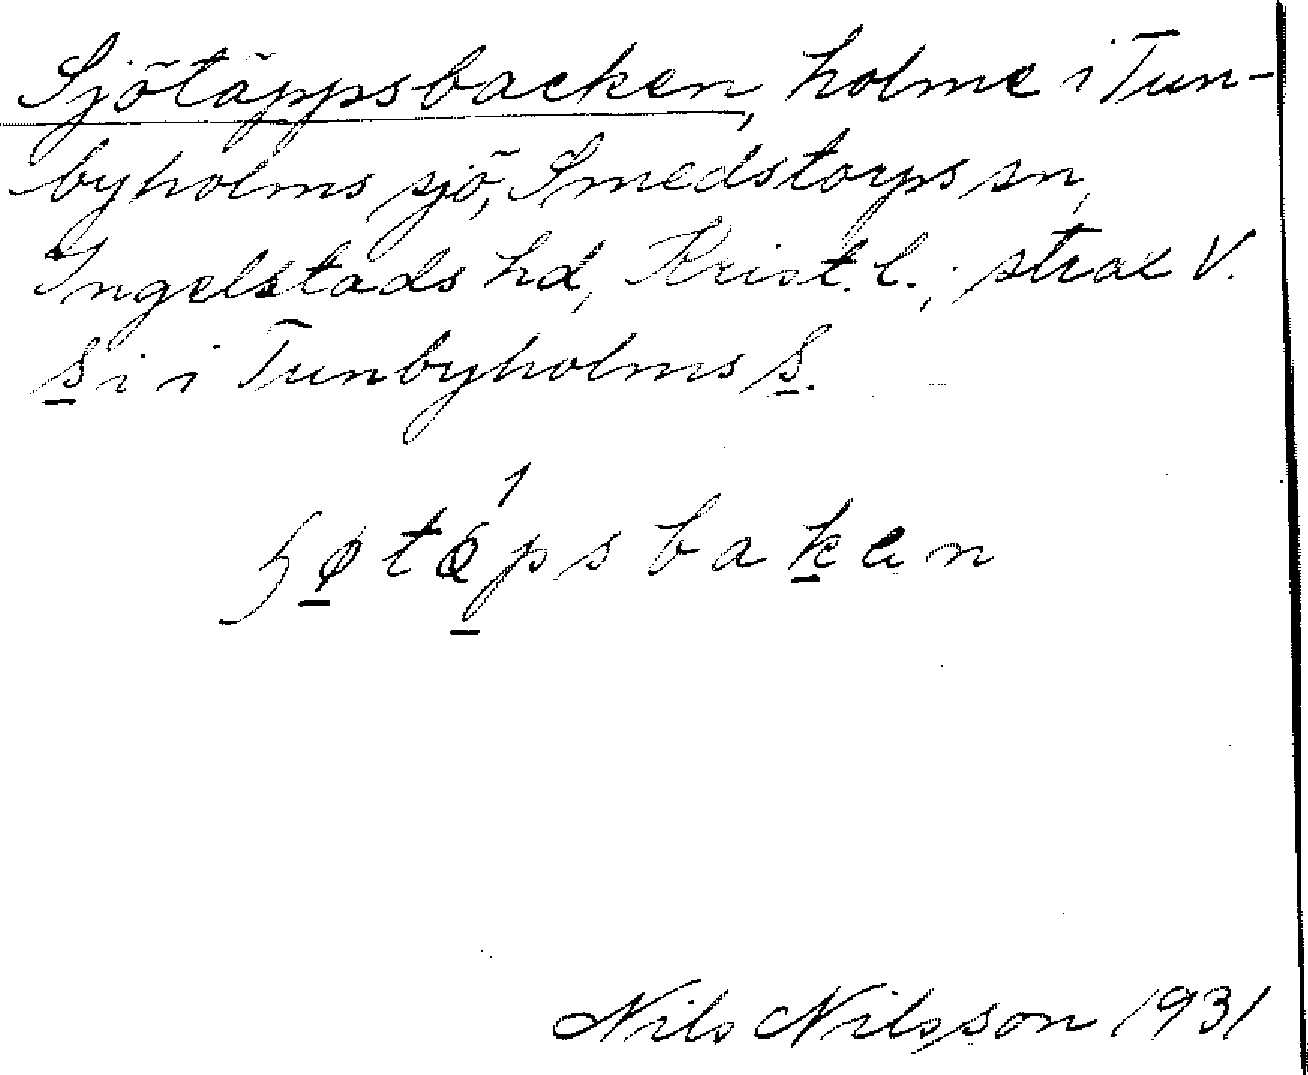 Sjötäppsbacken, holme i Tun-
byholms sjö, Smedstorps sn,
Ingelstads hd, Krist. l.; strax V.
s i i Tunbyholms s.
baken
Nils Nilsson 1931